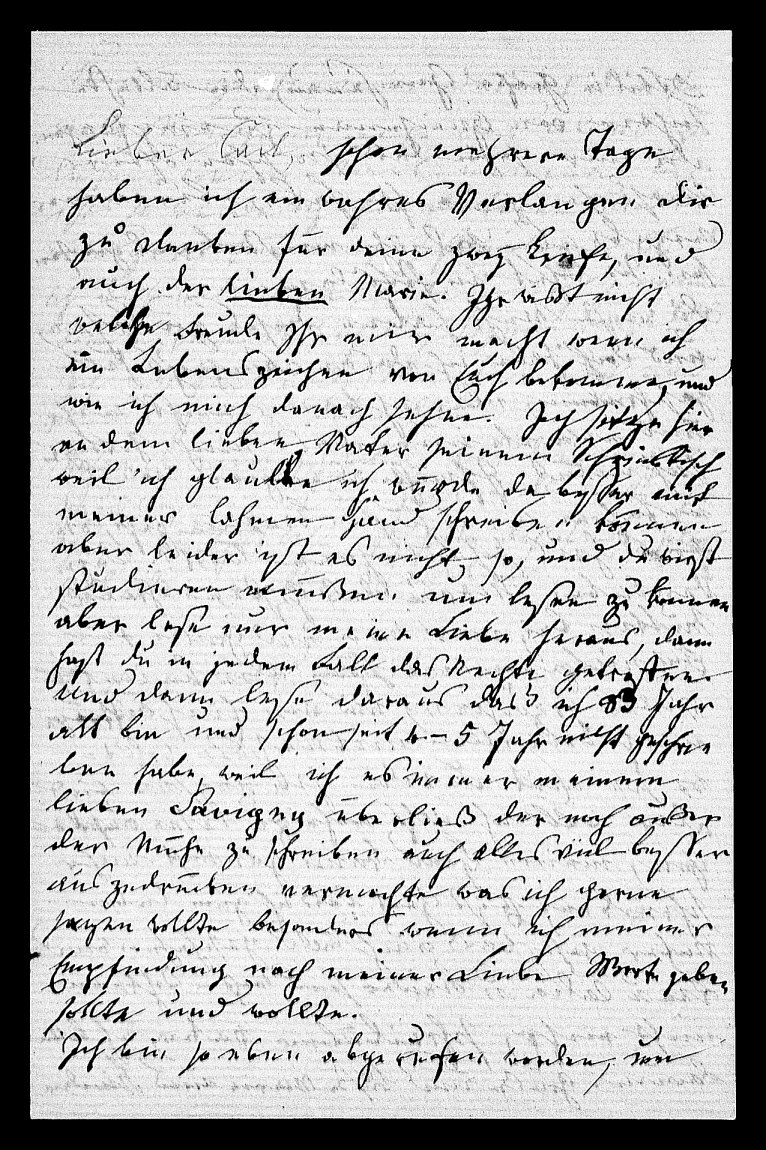 Lieber Carl, schon mehrere Tage
haben ich ein wahres Verlangen dir
zu danken für deine zwey Briefe, und
auch der lieben Marie. Ihr wißt nicht
welche Freude Ihr mir macht wenn ich
ein Lebenszeichen von Euch bekomme, und
wie ich mich danach sehne. Ich sitze hier
an dem lieben Vater seinem Schreibtisch
weil ich glaubte ich würde da besser mit
meiner lahmen Hand schreiben können
aber leider ist es nicht so, und du wirst
studieren müßen um lesen zu können
aber lese nur meine Liebe heraus, dann
hast du in jedem Fall das Rechte getroffen
und dann lese daraus daß ich 83 Jahr
alt bin und schon seit 4-5 Jahr nicht geschrie
ben habe, weil ich es immer meinem
lieben Savigny überließ der noch außer
der Mühe zu schreiben auch alles viel besser
auszudrücken vermochte was ich gerne
sagen wollte besonders wenn ich meiner
Empfindung nach meiner Liebe Worte geben
sollte und wollte.
Ich bin so eben abgerufen worden, um